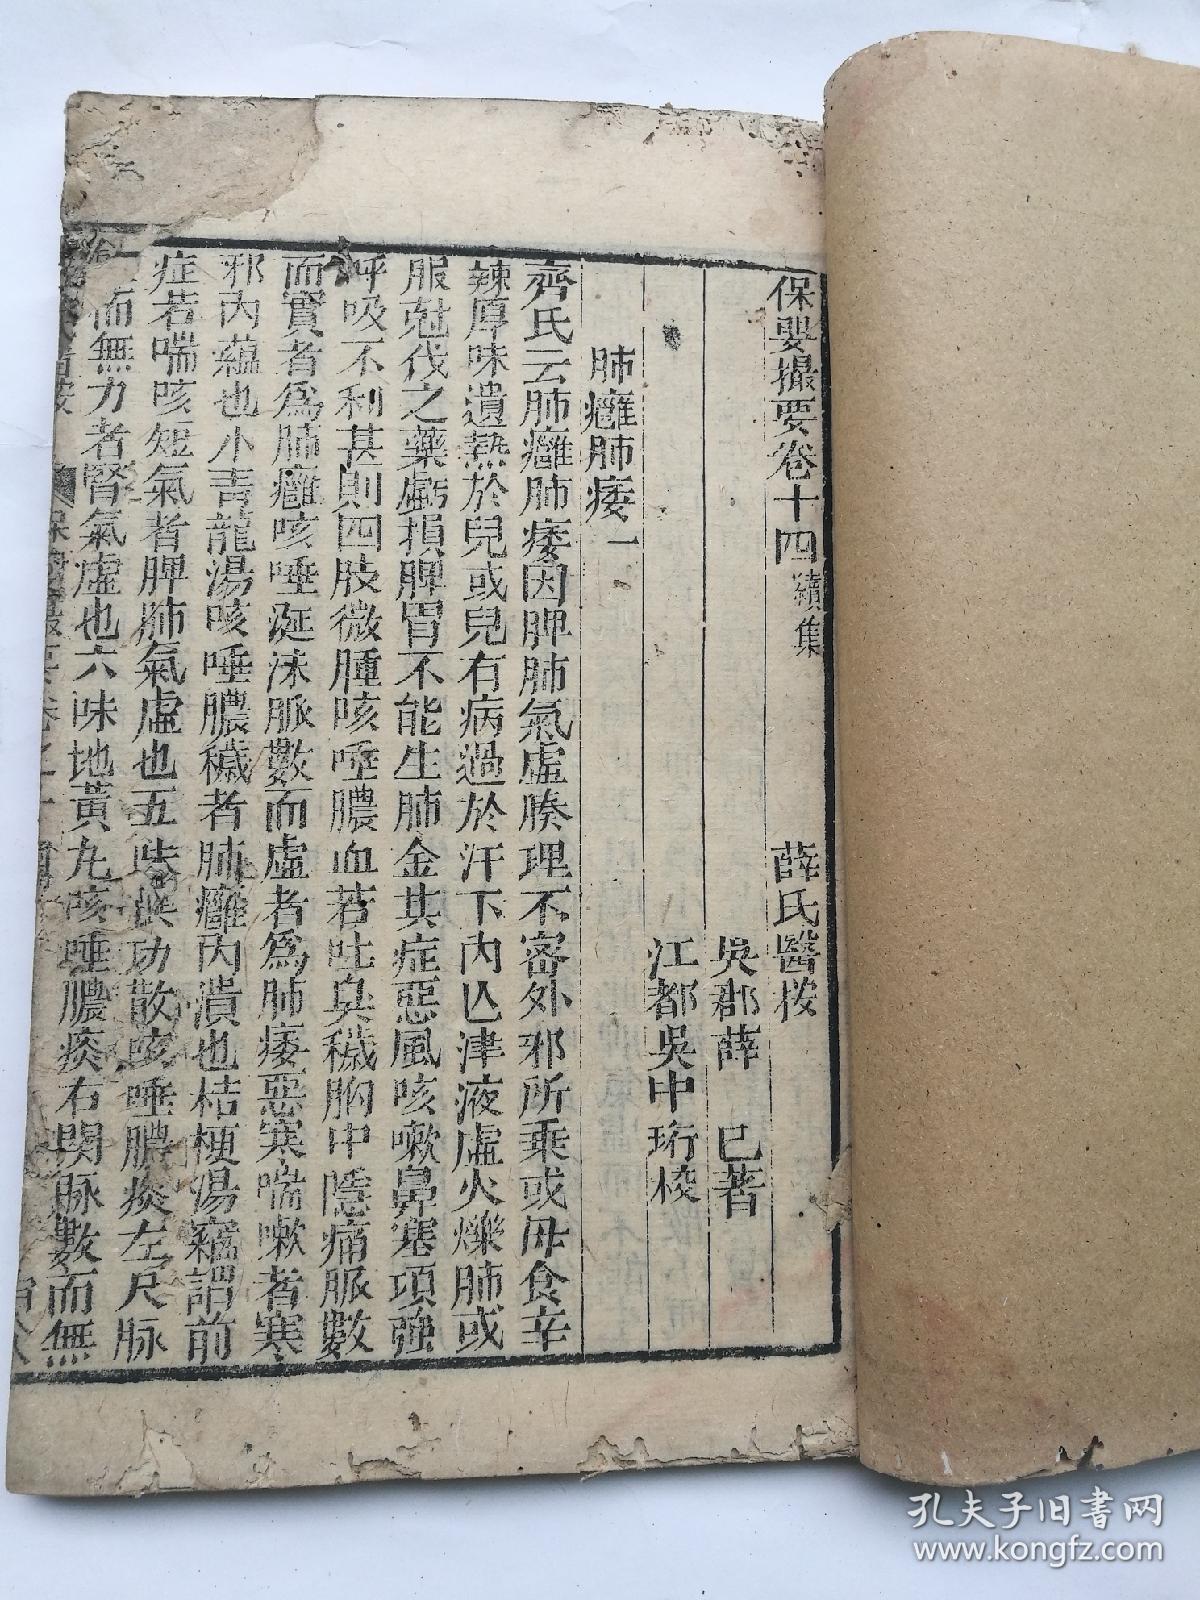 保嬰撮要卷十四續集　薛氏醫按
吳郡薛　已著
江都吳中珩校
肺癰肺痿一
齊氏云肺癰肺痿因脾肺氣虛腠理不密外邪所乘或母食辛
辣厚味遺熱於兒或兒有病過於汗下內亾津液虛火爍肺或
服尅伐之藥虧損脾胃不能生肺金其症惡風咳嗽鼻塞項強
呼吸不利甚則四肢微腫咳唾膿血若吐臭穢胸中隱痛脈數
而實者爲肺癰咳唾涎沫脈數而虛者爲肺痿惡寒喘嗽者寒
邪內蘊也小青龍湯咳唾膿穢者肺癰內潰也桔梗湯竊謂前
症若喘咳短氣者脾肺氣虛也五味異功散咳唾膿痰左尺脉
而無力者腎氣虛也六味地黃丸咳唾膿痰右関脉數而無
孔夫子旧书网
www.kongfz.com